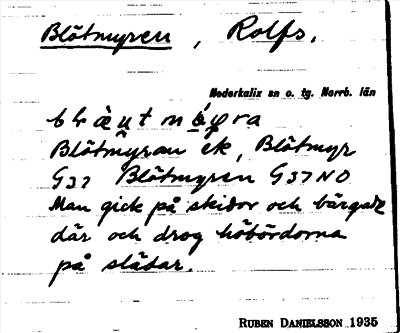 Blötmyren, Rolfs.
Nederkalix sn o. tg. Norrb. län
Blötmyran ek, Blötmyr
G37 Blötmyren G37NO
Man gick på skidor och bärgade
där och drog höbördorna
på slädar.
RUBEN DANIELSSON 1935